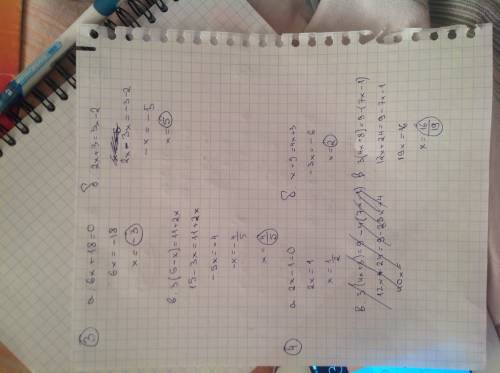 3
а. 6x + 18 = 0
6x = -18
x = -3
б. 2x + 3 = 3x - 2
2x - 3x = -3 - 2
-x = -5
x = 5
в. 3(5 - x) = 11 + 2x
15 - 3x = 11 + 2x
-5x = -4
-x = -4/5
x = 4/5
4
а. 2x - 1 = 0
2x = 1
x = 1/2
б. x + 9 = 4x + 3
-3x = -6
x = 2
в. 3(4x + 8) = 9 - (7x - 1)
12x + 24 = 9 - 7x - 1
19x = 16
x = 16/19